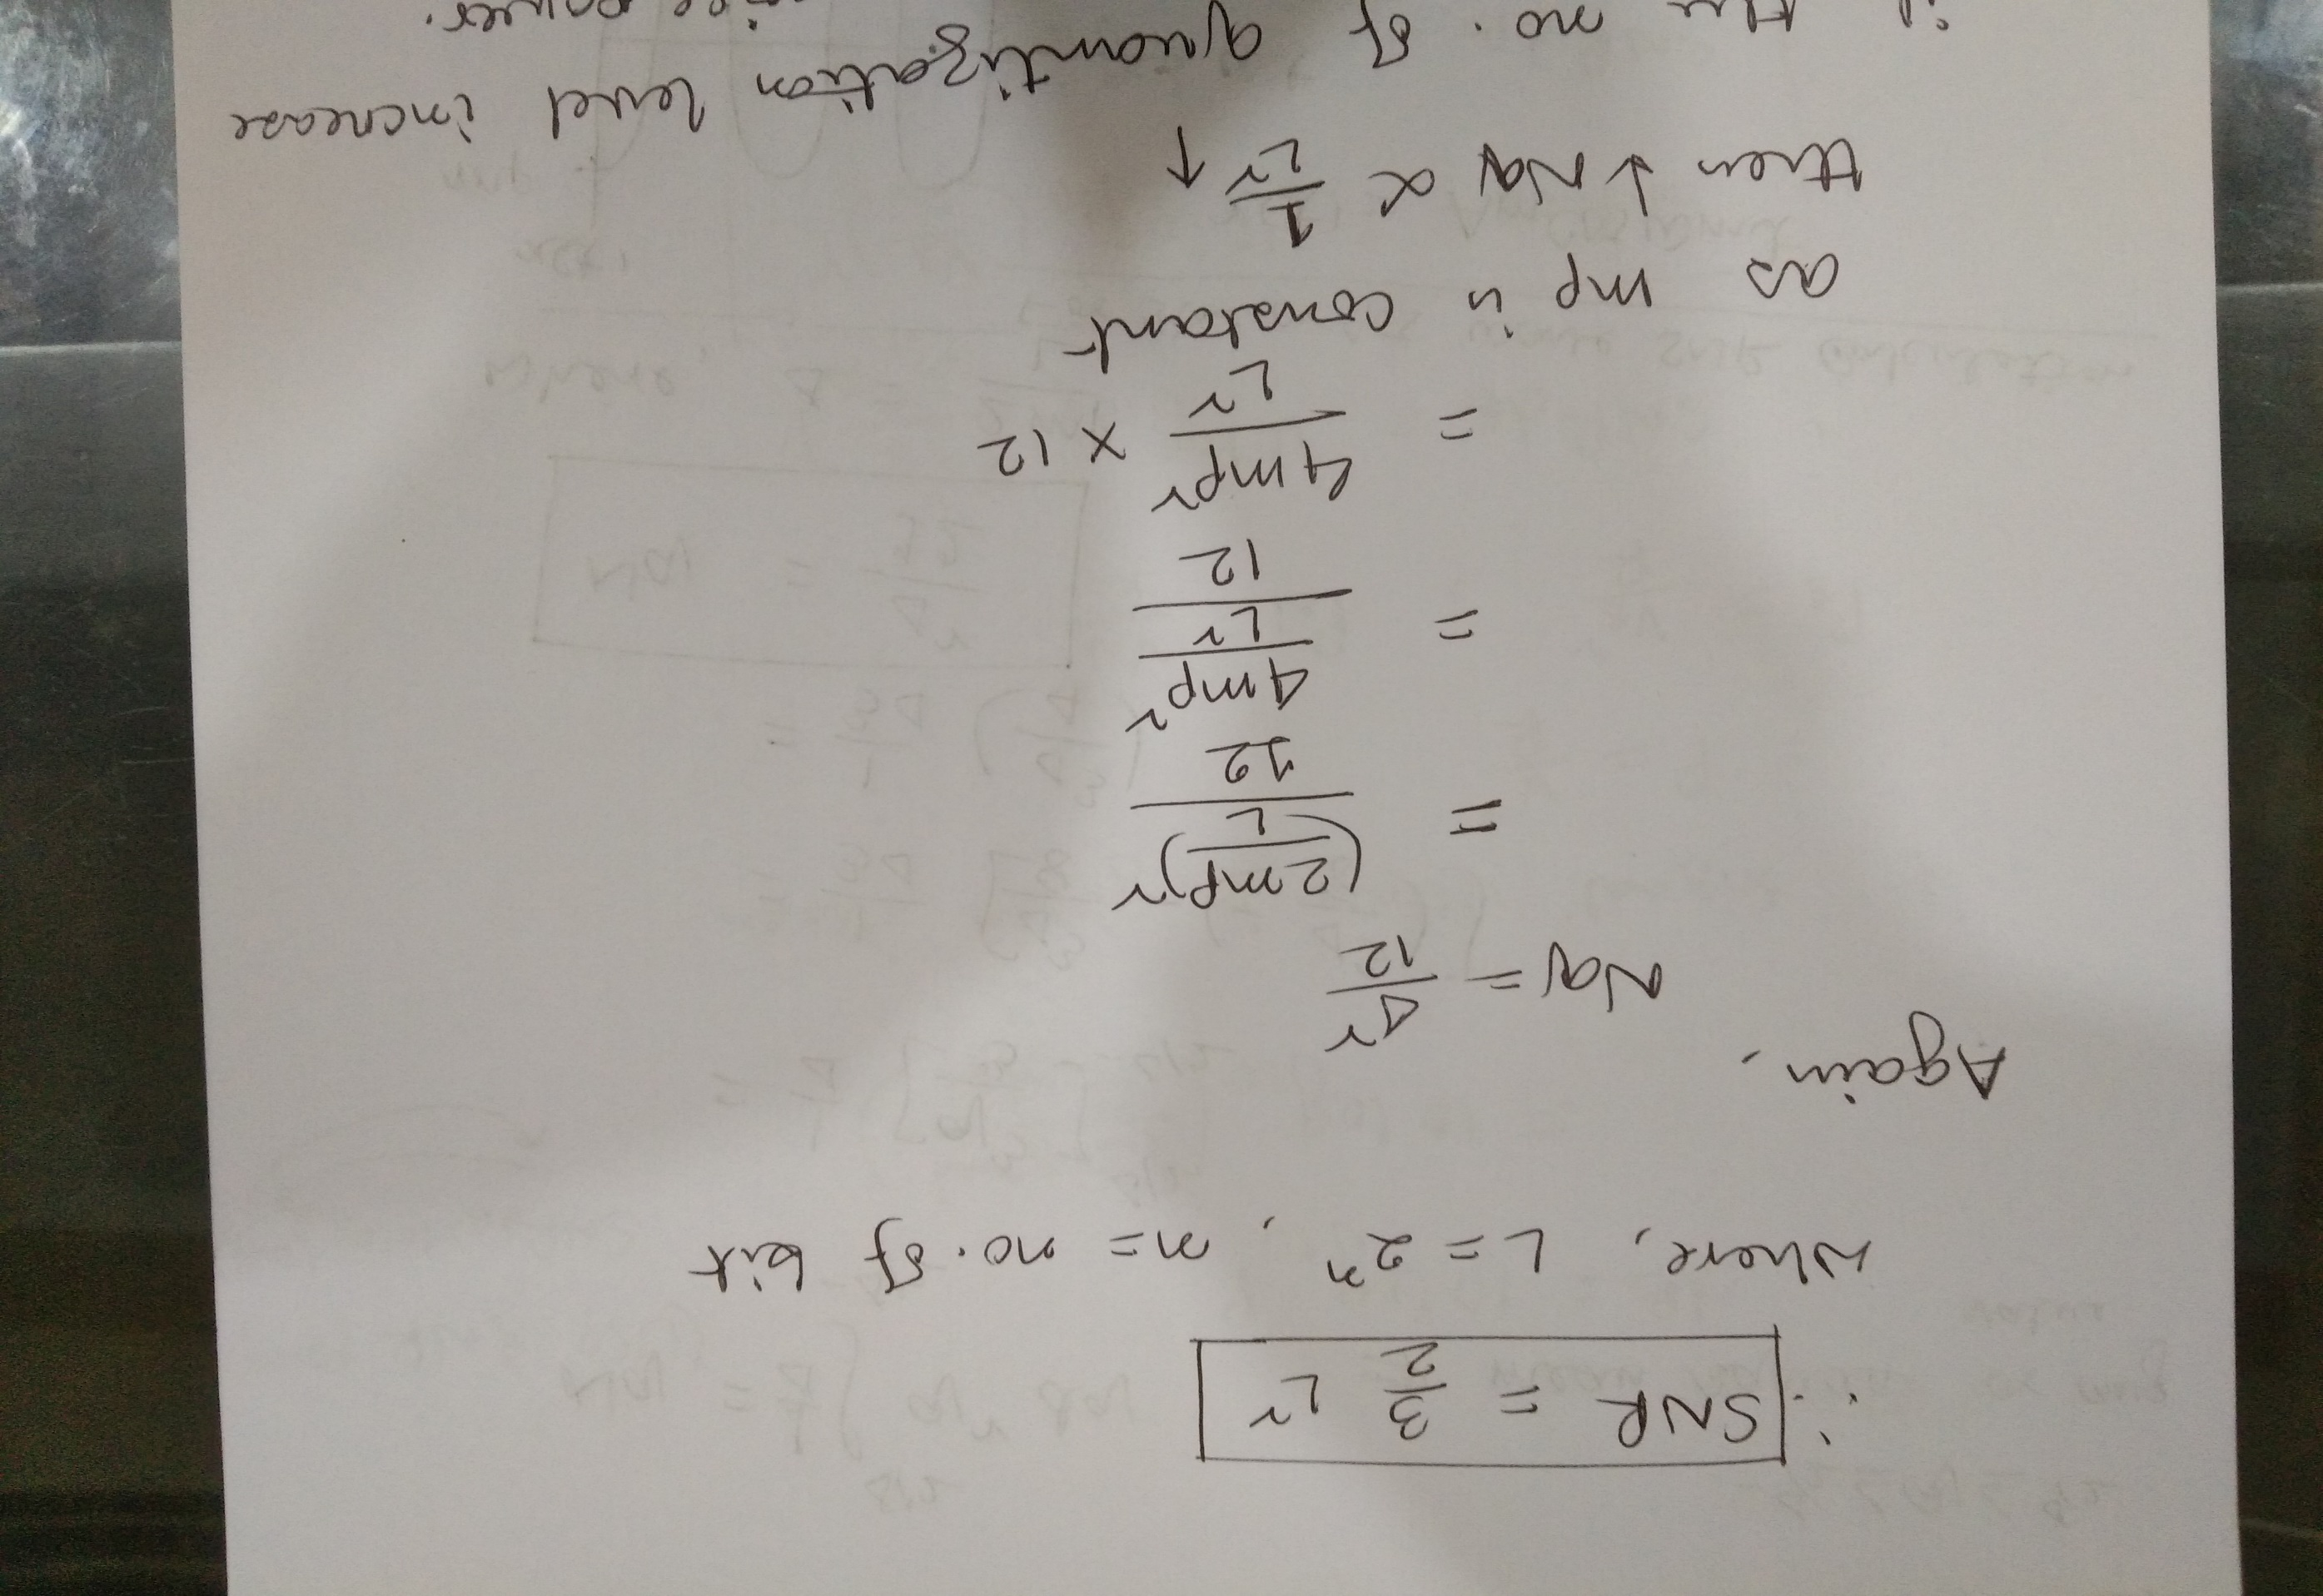 ∴ SNR = 3/2 L²
where, L = 2ⁿ, n = no. of bit
Again,
Nq = Δ²/12
= (2mp/L)²/12
= 4mp²/L²/12
= 4mp²/L² × 12
as mp is constant
then ↓ Nq ∝ 1/L² ↑
if the no. of quantization level increase
power.